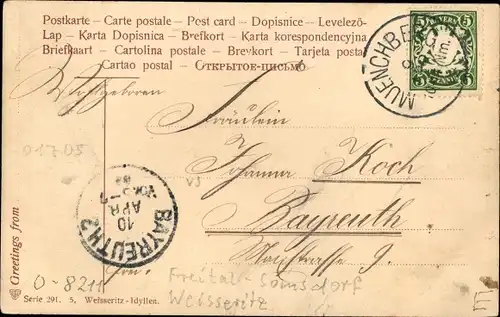 Postkarte – Carte postale – Post card – Dopisnice – Levelező-
Lap – Karta Dopisnica – Brefkort – Karta korespondencyjna
Briefkaart – Cartolina postale – Brevkort – Tarjeta postal
Cartao postal – ОТКРЫТОЕ-ПИСЬМО
5 BAYERN 5
PFENNIG
MUENCHBERG
Wohlgeboren
Fräulein
Johanna Koch
Bayreuth
01705
V3
BAYREUTH 2
10
APR
0-8211
Freital-Somsdorf
Weisseritz
Greetings from
Serie 291. 5, Weisseritz-Idyllen.